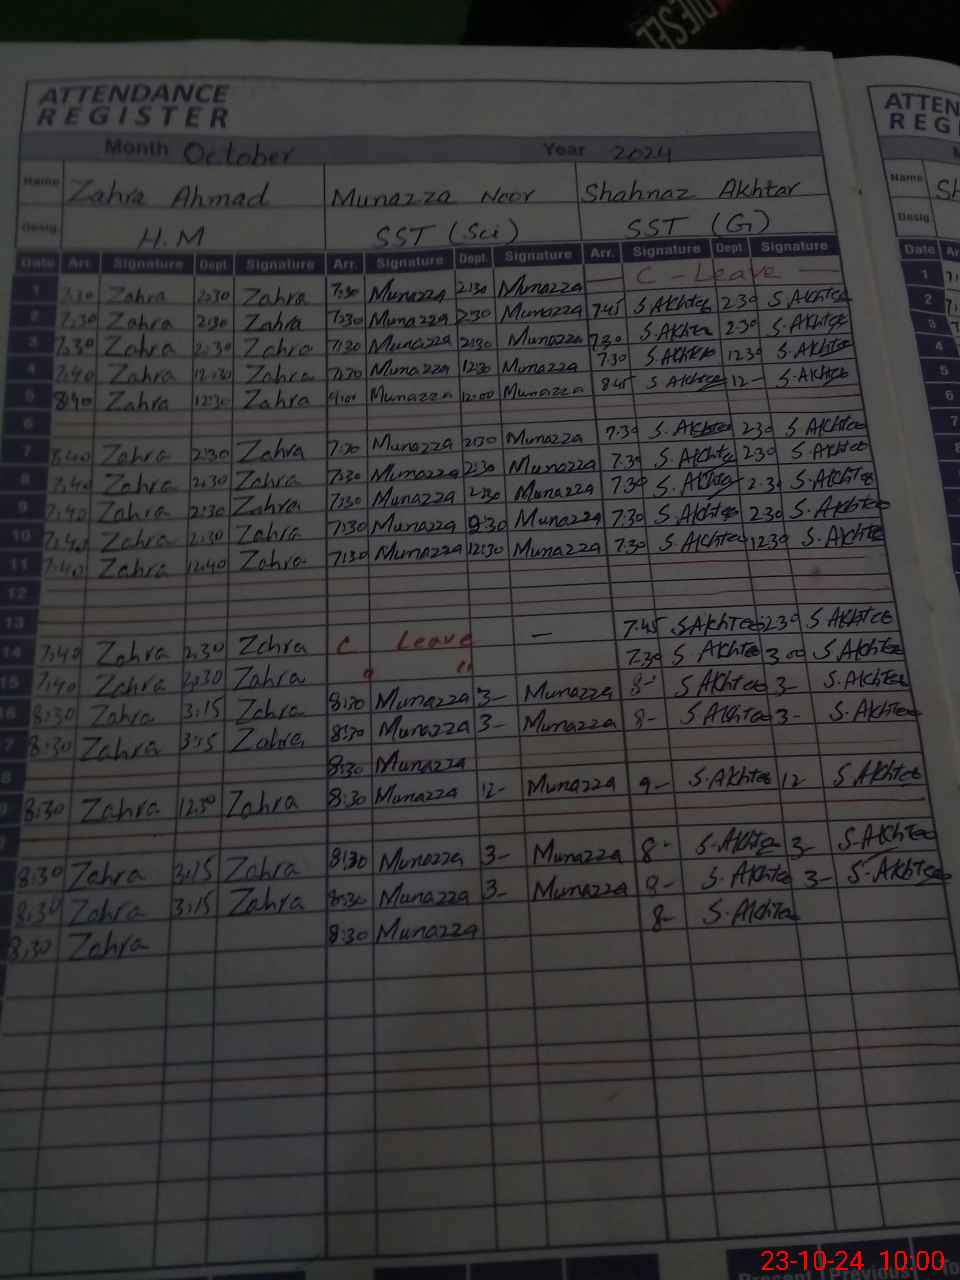 DIESEL
ATTENDANCE
REGISTER
Month October Year 2024
Name Zahra Ahmad Munazza Noor Shahnaz Akhtar
Desig. H.M SST (Sci) SST (G)
Date Arr. Signature Dept. Signature Arr. Signature Dept. Signature Arr. Signature Dept. Signature
1 7:30 Zahra 2:30 Zahra 7:30 Munazza 2:30 Munazza — C - Leave —
2 7:30 Zahra 2:30 Zahra 7:30 Munazza 2:30 Munazza 7:45 S.Akhter 2:30 S.Akhter
3 7:30 Zahra 2:30 Zahra 7:30 Munazza 2:30 Munazza 7:30 S.Akhter 2:30 S.Akhter
4 7:40 Zahra 12:30 Zahra 7:30 Munazza 12:30 Munazza 7:30 S.Akhter 12:30 S.Akhter
5 8:40 Zahra 12:30 Zahra Munazza 12:00 Munazza 8:45 S Akhter 12- S.Akhter
6
7 8:40 Zahra 2:30 Zahra 7:30 Munazza 2:30 Munazza 7:30 S.Akhter 2:30 S Akhter
8 7:40 Zahra 2:30 Zahra 7:30 Munazza 2:30 Munazza 7:30 S.Akhter 2:30 S.Akhter
9 7:40 Zahra 2:30 Zahra 7:30 Munazza 2:30 Munazza 7:30 S.Akhter 2:30 S.Akhter
10 7:40 Zahra 2:30 Zahra 7:30 Munazza 2:30 Munazza 7:30 S.Akhter 2:30 S.Akhter
11 7:40 Zahra 12:40 Zahra 7:30 Munazza 12:30 Munazza 7:30 S.Akhter 12:30 S.Akhter
12
13
14 7:40 Zahra 2:30 Zahra C Leave — 7:45 S.Akhter 2:30 S Akhter
15 7:40 Zahra 2:30 Zahra " " 7:30 S.Akhter 3:00 S.Akhter
16 8:30 Zahra 3:15 Zahra 8:30 Munazza 3- Munazza 8- S Akhter 3- S.Akhter
7 8:30 Zahra 3:15 Zahra 8:30 Munazza 3- Munazza 8- S Akhter 3- S.Akhter
8 8:30 Munazza
8:30 Zahra 12:30 Zahra 8:30 Munazza 12- Munazza 9- S.Akhter 12 S.Akhter
8:30 Zahra 3:15 Zahra 8:30 Munazza 3- Munazza 8- S.Akhter 3- S.Akhter
8:30 Zahra 3:15 Zahra 8:30 Munazza 3- Munazza 8- S.Akhter 3- S.Akhter
8:30 Zahra 8:30 Munazza 8- S.Akhter
ATTEN
REGI
Name Sh
Desig.
Date Ar
1
2
3
4
5
6
7
Present Previous To
23-10-24 10:00